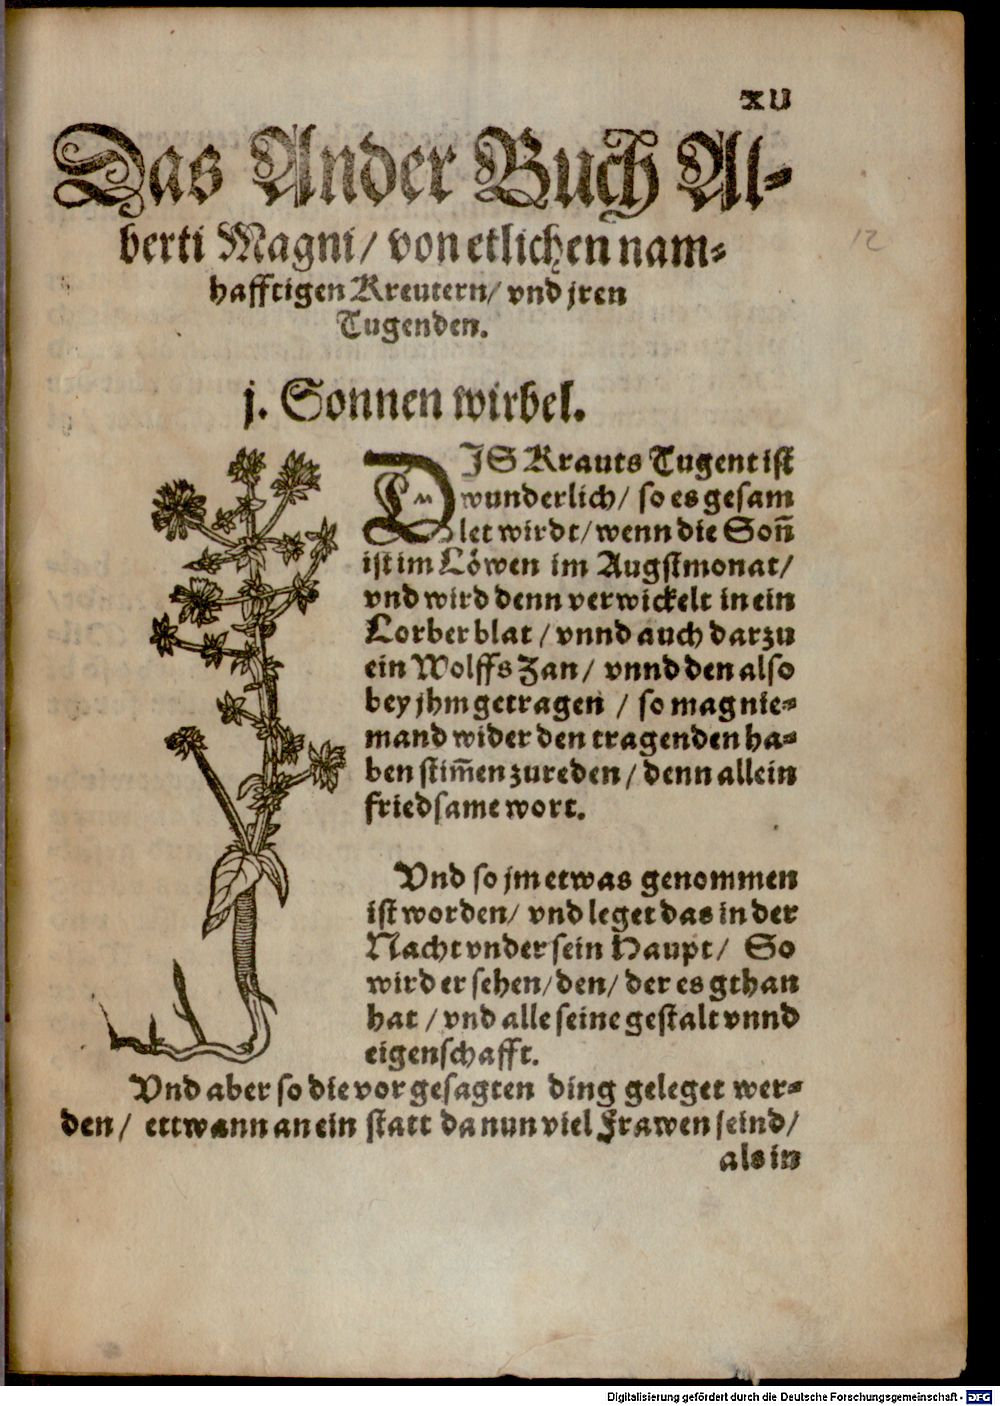 xij
Das Ander Buch Al-
berti Magni / von etlichen nam-
hafftigen Kreutern / vnd jren
Tugenden.
12
j. Sonnen wirbel.
DIS Krauts Tugent ist
wunderlich / so es gesam
let wirdt / wenn die Soñ
ist im Löwen im Augstmonat /
vnd wird denn verwickelt in ein
Lorber blat / vnnd auch darzu
ein Wolffs Zan / vnnd den also
bey jhm getragen / so mag nie-
mand wider den tragenden ha-
ben stim̃en zureden / denn allein
friedsame wort.
Vnd so jm etwas genommen
ist worden / vnd leget das in der
Nacht vnder sein Haupt / So
wird er sehen / den / der es gthan
hat / vnd alle seine gestalt vnnd
eigenschafft.
Vnd aber so die vor gesagten ding geleget wer-
den / ettwann an ein statt da nun viel Frawen seind /
als in
Digitalisierung gefördert durch die Deutsche Forschungsgemeinschaft - DFG